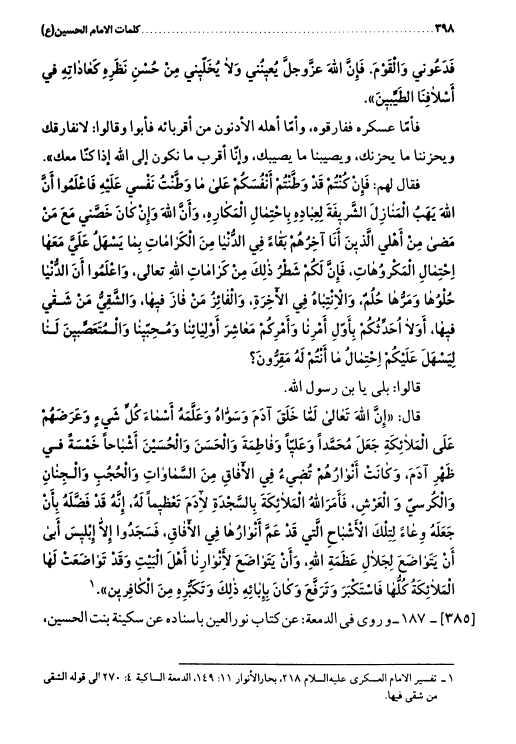 ٣٩٨ ........................ كلمات الامام الحسين(ع)
فَدَعُوني وَالْقَوْمَ. فَإِنَّ اللهَ عزّوجلَّ يُعينُني وَلاٰ يُخَلّيني مِنْ حُسْنِ نَظَرِهِ كَعٰادٰاتِهِ في
أَسْلاٰفِنَا الطَيّبينَ».
فأمّا عسكره ففارقوه، وأمّا أهله الأدنون من أقربائه فأبوا وقالوا: لانفارقك
ويحزننا ما يحزنك، ويصيبنا ما يصيبك، وإنّا أقرب ما نكون إلى الله إذا كنّا معك».
فقال لهم: فَإِنْ كُنْتُمْ قَدْ وَطَّنْتُمْ أَنْفُسَكُمْ عَلىٰ مٰا وَطَّنْتُ نَفْسي عَلَيْهِ فَاعْلَمُوا أَنَّ
اللهَ يَهَبُ الْمَنٰازِلَ الشَّريفَةَ لِعِبٰادِهِ بِاحْتِمٰالِ الْمَكٰارِهِ، وَأَنَّ اللهَ وَإِنْ كٰانَ خَصَّني مَعَ مَنْ
مَضىٰ مِنْ أَهْلي الَّذينَ أَنَا آخِرُهُمْ بَقٰاءً فِي الدُّنْيٰا مِنَ الْكَرٰامٰاتِ بِمٰا يَسْهَلُ عَلَيَّ مَعَهٰا
اِحْتِمٰالُ الْمَكْرُوهٰاتِ، فَإِنَّ لَكُمْ شَطْرُ ذٰلِكَ مِنْ كَرٰامٰاتِ اللهِ تعالى، وَاعْلَمُوا أَنَّ الدُّنْيٰا
حُلْوُهٰا وَمَرُّهٰا حُلُمٌ، وَالْإِنْتِبٰاهُ فِي الْآخِرَةِ، وَالْفٰائِزُ مَنْ فٰازَ فيهٰا، وَالشَّقِيُّ مَنْ شَـقىٰ
فيهٰا، أَوَلاٰ اُحَدِّثُكُمْ بِأَوَّلِ أَمْرِنٰا وَأَمْرِكُمْ مَعٰاشِرَ أَوْلِيٰائِنٰا وَمُـحِبّينٰا وَالْـمُتَعَصِّبينَ لَـنٰا
لِيَسْهَلَ عَلَيْكُمْ اِحْتِمٰالُ مٰا أَنْتُمْ لَهُ مَقِرُّونَ؟
قالوا: بلى يا بن رسول الله.
قال: «إِنَّ اللهَ تَعٰالىٰ لَمّٰا خَلَقَ آدَمَ وَسَوّٰاهُ وَعَلَّمَهُ أَسْمٰاءَ كُلِّ شَيْءٍ وَعَرَضَهُمْ
عَلَى الْمَلاٰئِكَةِ جَعَلَ مُحَمَّداً وَعَلِيّاً وَفٰاطِمَةَ وَالْحَسَنَ وَالْحُسَيْنَ أَشْبٰاحاً خَمْسَةً فـي
ظَهْرِ آدَمَ، وَكٰانَتْ أَنْوٰارُهُمْ تُضيءُ فِي الْآفٰاقِ مِنَ السَّمٰاوٰاتِ وَالْحُجُبِ وَالْـجِنٰانِ
وَالْكُرسيِّ وَ الْعَرْشِ، فَأَمَرَاللهُ الْمَلاٰئِكَةَ بِالسَّجْدَةِ لِآدَمَ تَعْظيماً لَهُ، إِنَّهُ قَدْ فَضَّلَهُ بِأَنْ
جَعَلَهُ وِعٰاءً لِتِلْكَ الْأَشْبٰاحِ الَّتي قَدْ عَمَّ أَنْوٰارُهٰا فِي الْآفٰاقِ، فَسَجَدُوا إِلاّٰ إِبْليسَ أَبىٰ
أَنْ يَتَوٰاضَعَ لِجَلاٰلِ عَظَمَةِ اللهِ، وَأَنْ يَتَوٰاضَعَ لِأَنْوٰارِنٰا أَهْلَ الْبَيْتِ وَقَدْ تَوٰاضَعَتْ لَهَا
الْمَلاٰئِكَةُ كُلُّهٰا فَاسْتَكْبَرَ وَتَرَفَّعَ وَكٰانَ بِإِبٰائِهِ ذٰلِكَ وَتَكَبُّرِهِ مِنَ الْكٰافِرينَ».١
[٣٨٥] ـ ١٨٧ ـ و روى في الدمعة: عن كتاب نورالعين باسناده عن سكينة بنت الحسين،
١ ـ تفسير الامام العسكرى عليه‌السلام ٢١٨، بحارالأنوار ١١: ١٤٩، الدمعة الساكبة ٤: ٢٧٠ الى قوله الشقى
من شقى فيها.